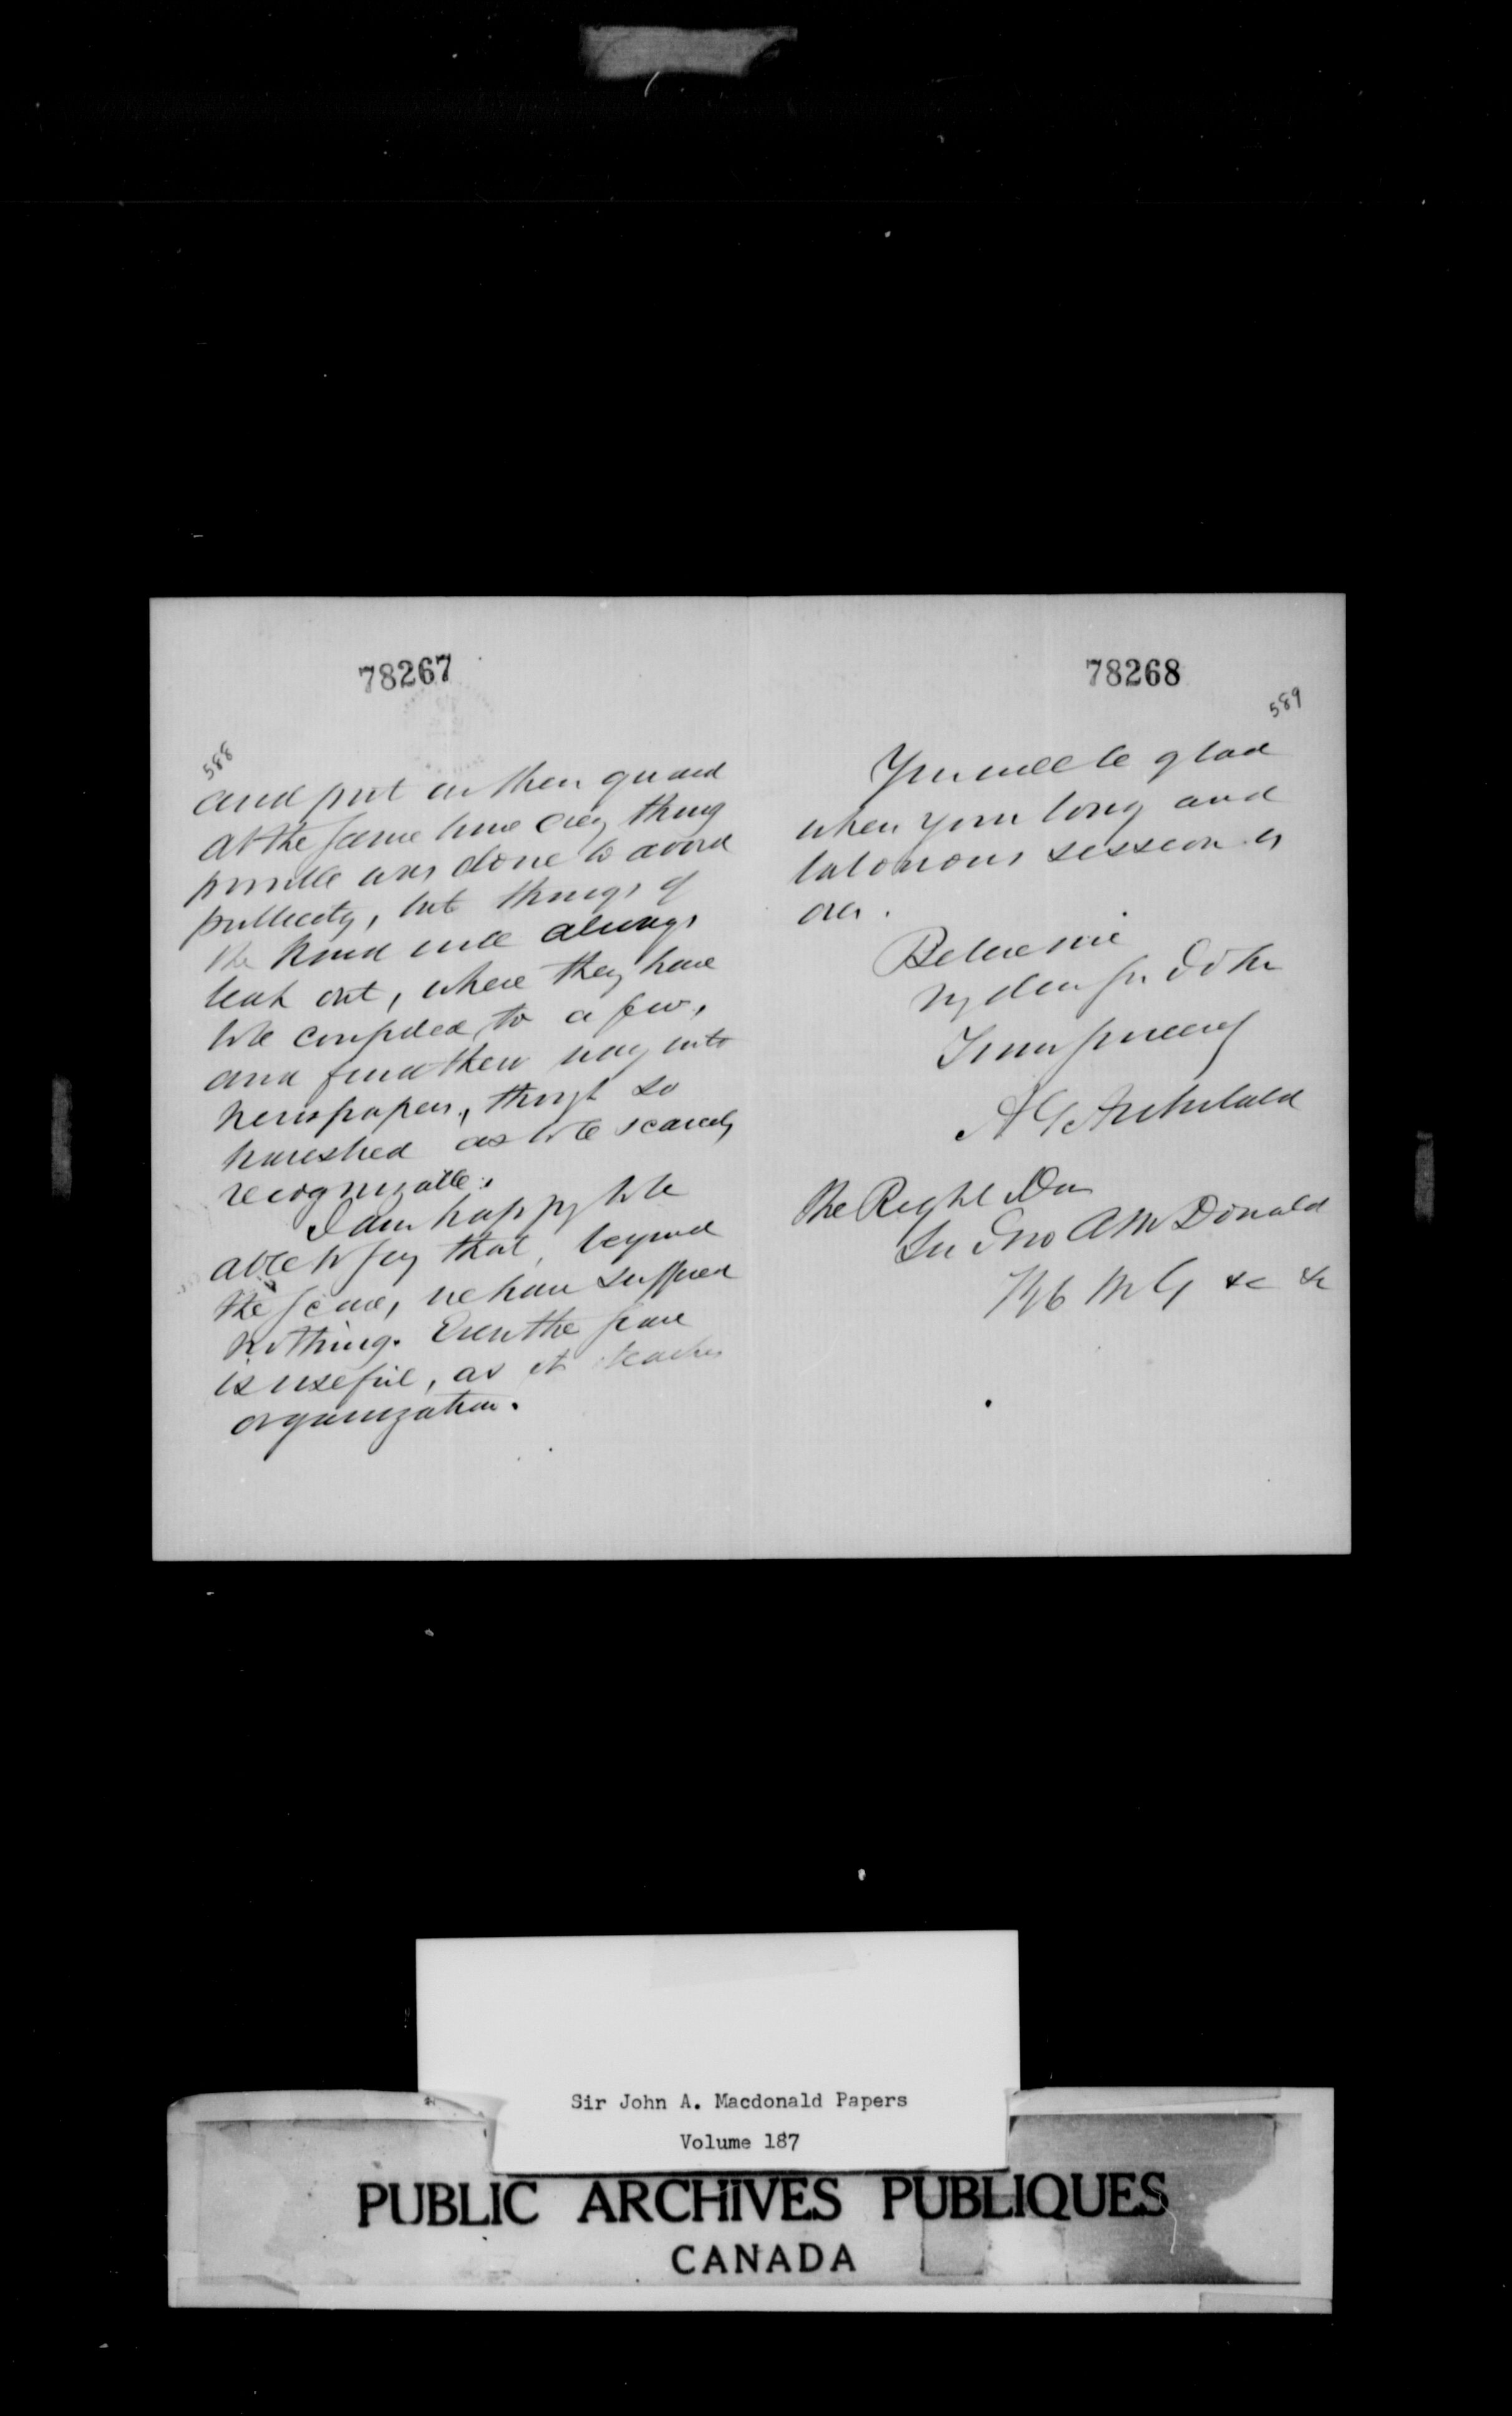 78267
588
and put on their guard
At the same time every thing
possible was done to avoid
publicity, but things of
the kind will always
leak out, where they have
to be confided to a few,
and find their way into
newspapers, though so
as to be scarcely
recognizable.
I am happy to be
able to say that, beyond
the scare, we have suffered
nothing. Even the scare
is useful, as it teaches
organization.
78268
589
You will be glad
when your long and
laborious session is
over.
Believe me
My dear Sir John
Yours sincerely
A G Archibald
The Right Hon
Sir Jno A McDonald
K C M G &c &c
Sir John A. Macdonald Papers
Volume 187
PUBLIC ARCHIVES PUBLIQUES
CANADA